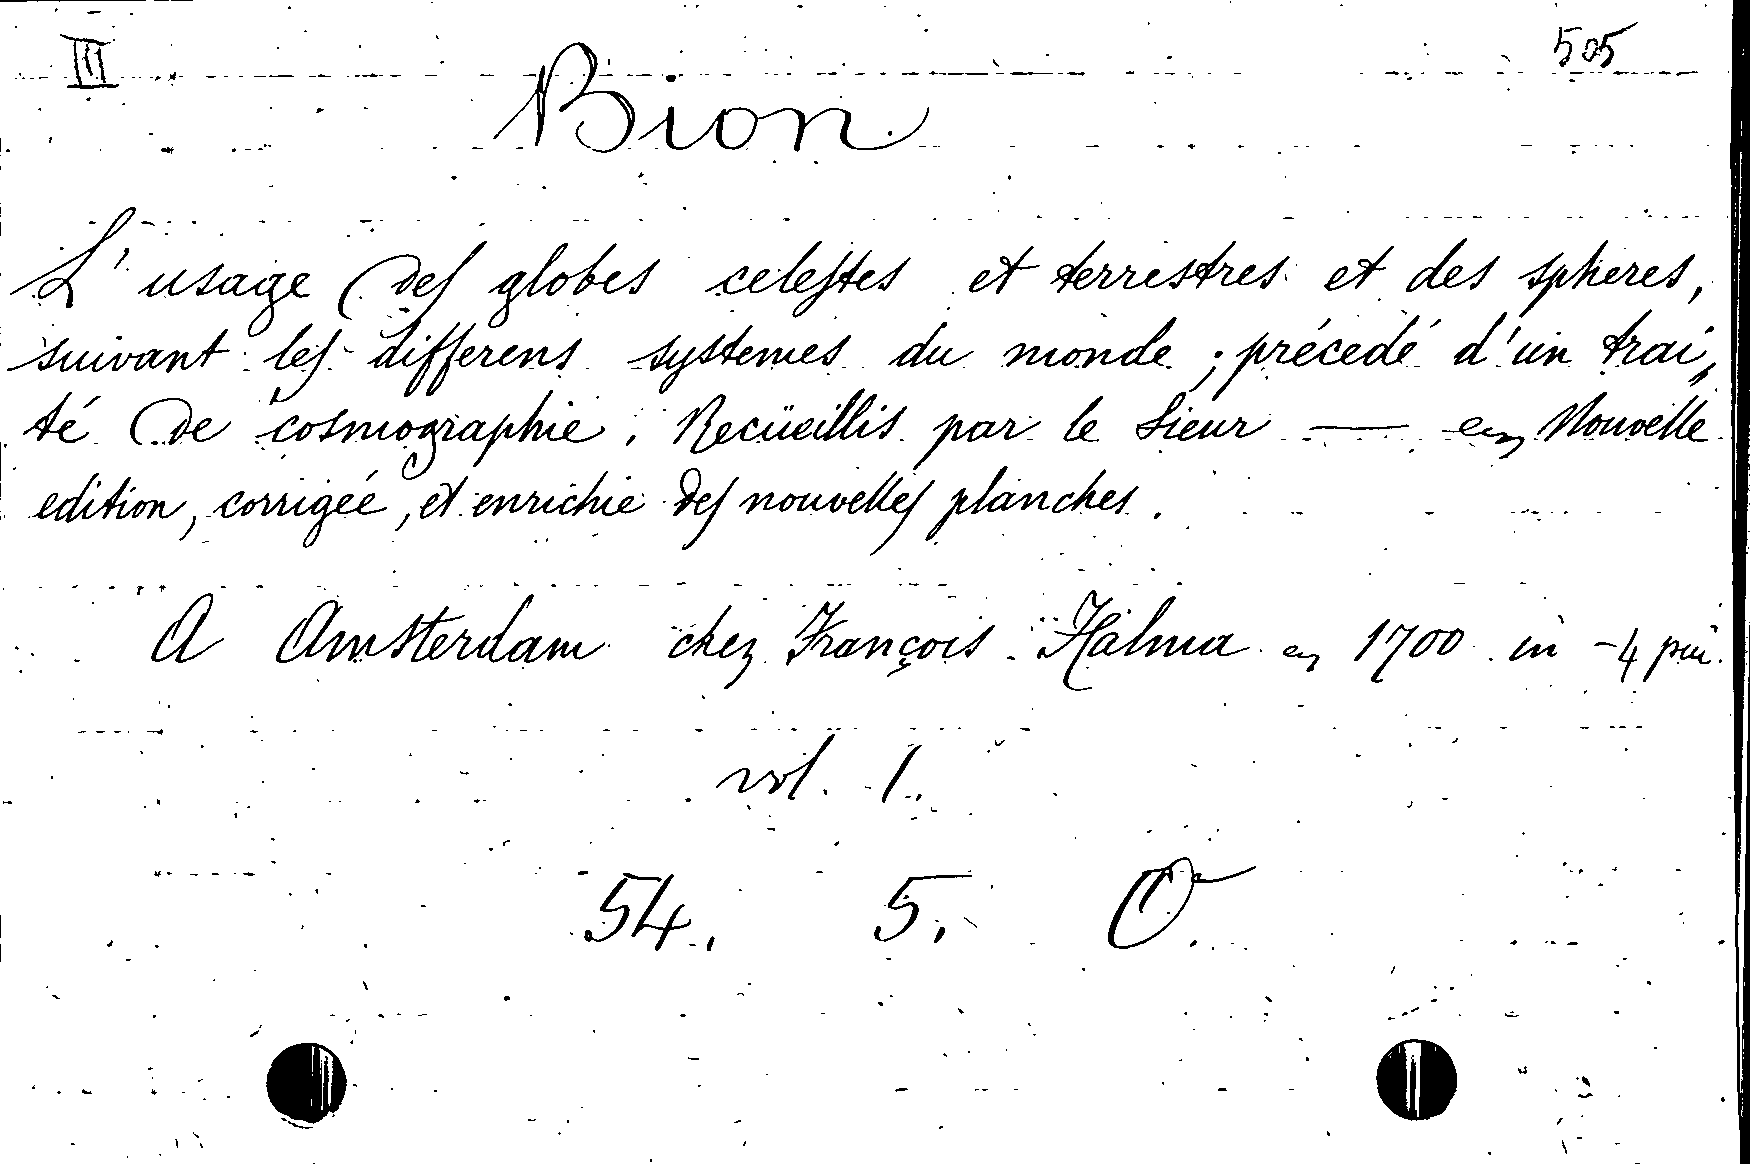 III 505
Bion
L'usage des globes celestes et terrestres et des spheres,
suivant les differens systemes du monde ; précedé d'un trai,
té de cosmographie. Recüeillis par le Sieur — Nouvelle
edition, corrigée, et enrichie des nouvelles planches.
A Amsterdam chez François Halma 1700 in -4 
vol. 1.
54. 5. O